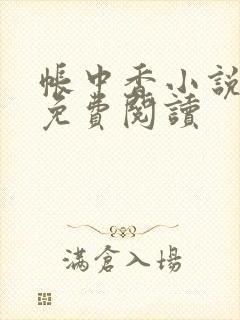 帳中香小說
免費閱讀
滿倉入場